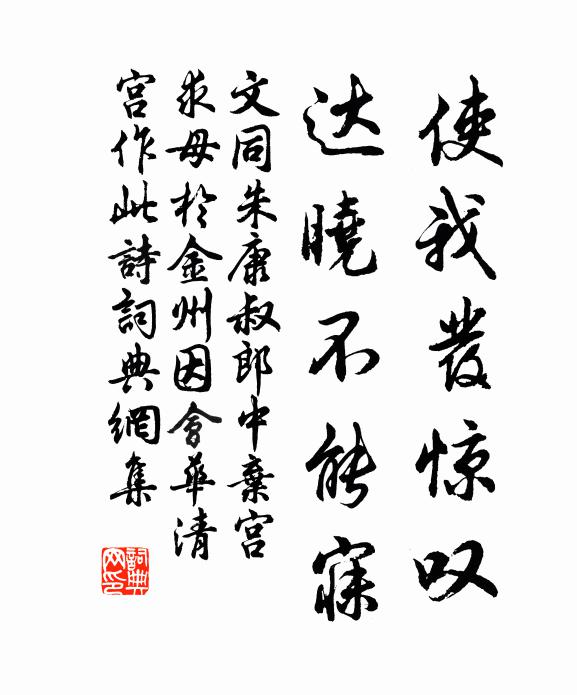 使我发惊叹
达曉不能寐
文同朱康叔郎中棄宫
求母於金州因會華清
宫作此詩詞典網集
詞典网印